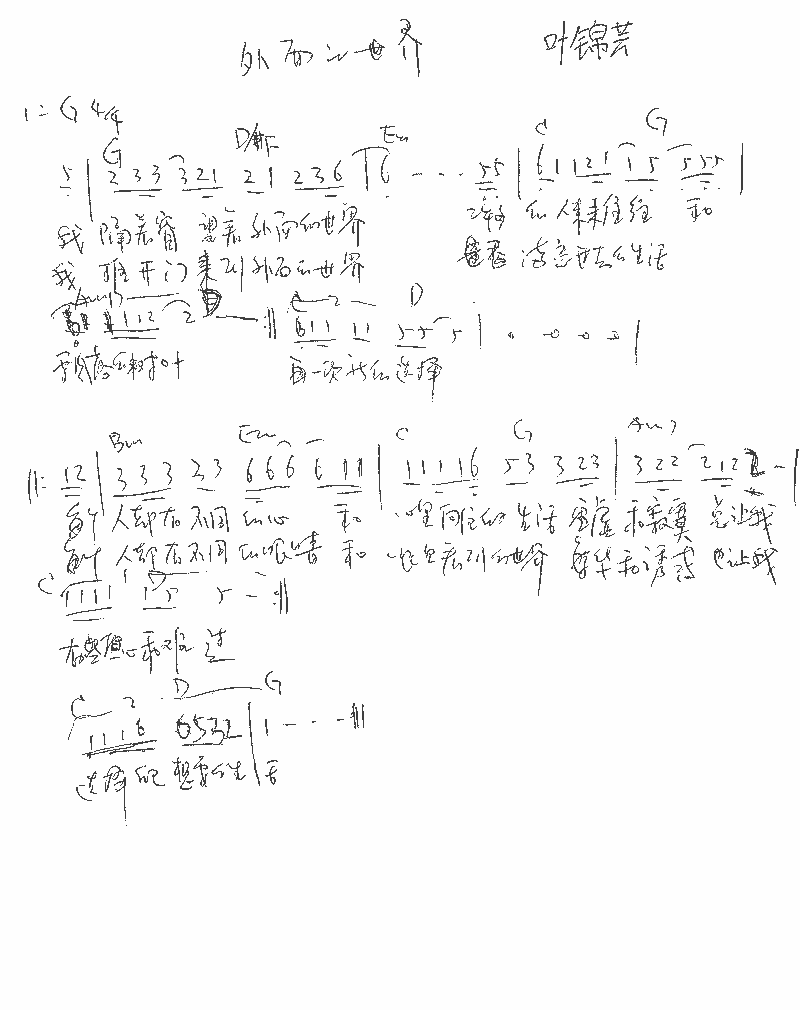 外面的世界 叶锦芸
1=G 4/4
G D/#F Em C G
5 | 2 3 3 3 2 1 2 1 2 3 6 1 6 - - - 5 5 | 6 1 1 2 1 1 5 5 5 5 |
我 隔着窗 望着外面的世界 的人来来往往 和
我 推开门 来到外面的世界 的生活
Am7 C D
1 1 2 2 - :|| 6 1 1 1 1 5 5 5 | 0 0 0 0 |
的树叶 再一次 的选择
Bm Em C G Am7
||: 1 2 | 3 3 3 3 3 6 6 6 6 1 1 | 1 1 1 1 6 5 3 3 2 3 | 3 2 2 2 1 2 2 - |
每个 人都有不同的心 和 心里向往的生活 空虚和寂寞 总让我
每个 人都有不同的眼睛 和 看到的世界 繁华和诱惑 也让我
C D
1 1 1 1 1 5 5 - :||
和难过
C 2 D G
1 1 1 6 6 5 3 2 | 1 - - - |||
选择 想要的生活